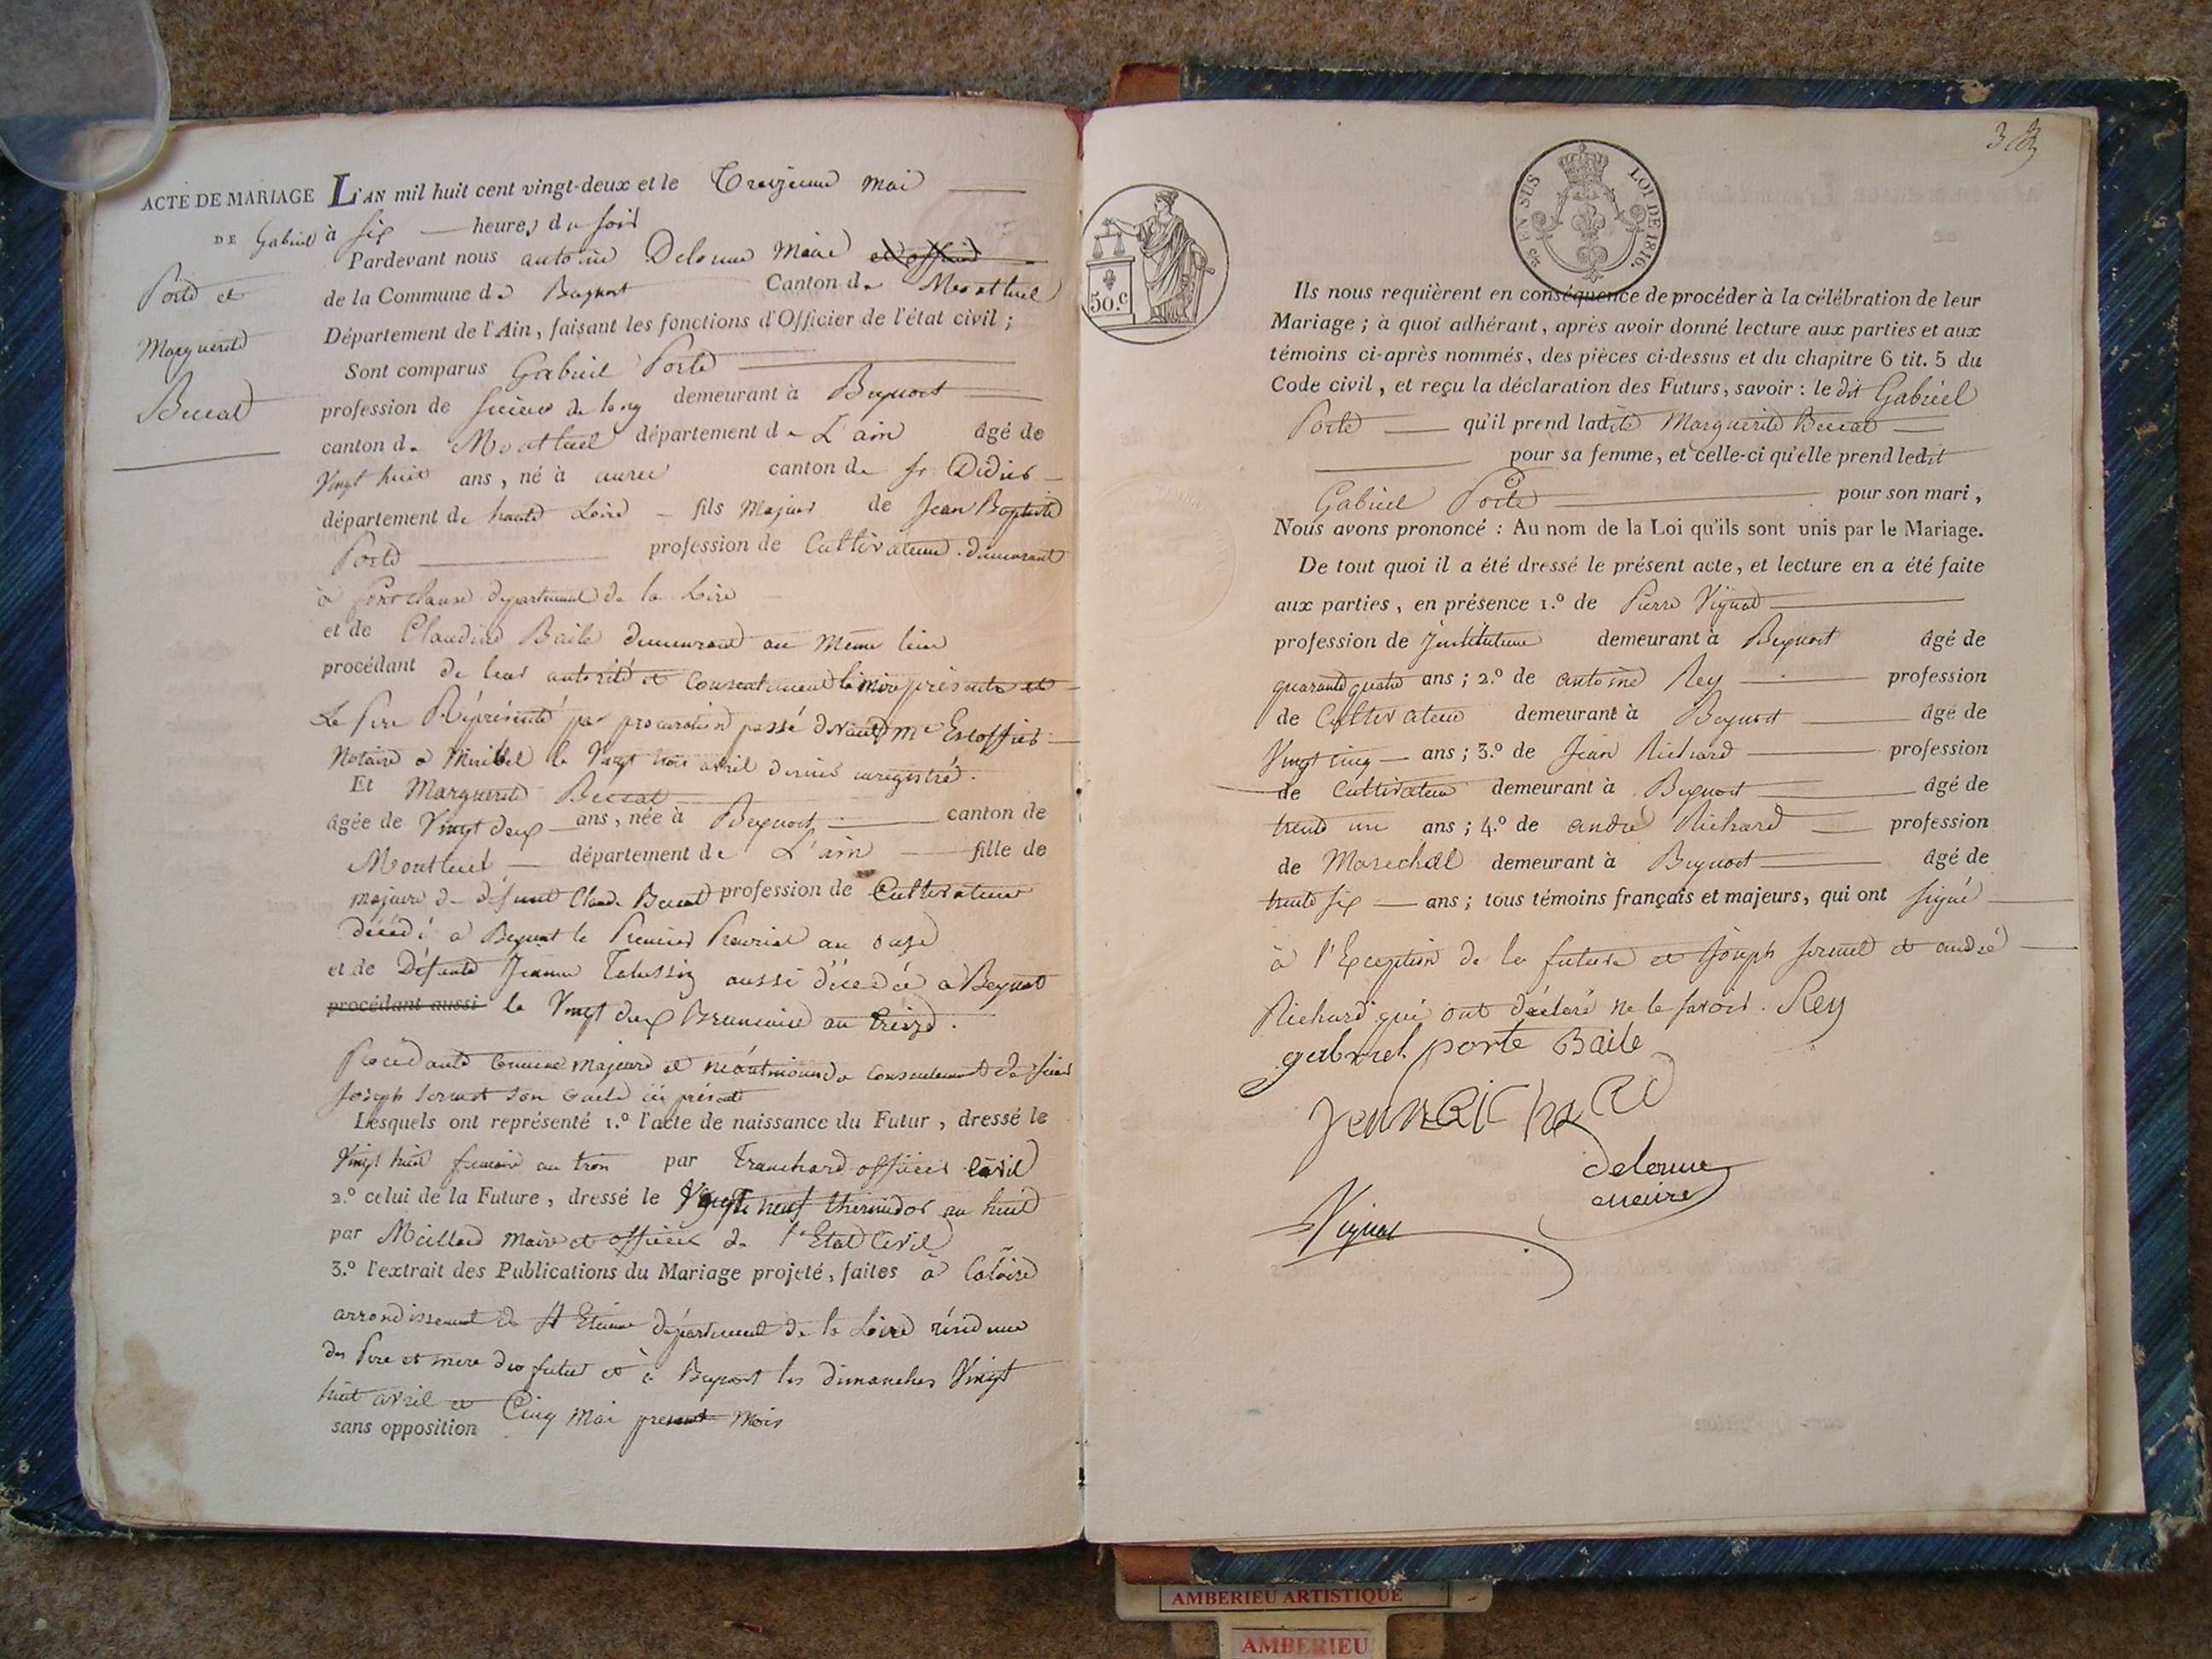 ACTE DE MARIAGE
DE Gabriel
Porte et
Marguerite
Buccat
L'AN mil huit cent vingt-deux et le Treizieme mai
à six heures du soir
Pardevant nous antoine Delorme Maire et officier
de la Commune de Beynost Canton de Montluel
Département de l'Ain, faisant les fonctions d'Officier de l'état civil ;
Sont comparus Gabriel Porte
profession de scieur de long demeurant à Beynost
canton de Montluel département de L'ain âgé de
Vingt huit ans, né à aurec canton de st Didier
département de haute Loire fils Majeur de Jean Baptiste
Porte profession de Cultivateur demeurant
à département de la Loire
et de Claudine Baile demeurant au même lieu
procédant de leur autorité et consentement la mère présente et
Le Pere Réprésenté par procuration passé devant Me Escoffier
Notaire a Miribel le Vingt trois avril dernier enregistré.
Et Marguerite Buccat
âgée de Vingt deux ans, née à Beynost canton de
Montluel département de L'ain fille de
majeure de défunt Claude Buccat profession de Cultivateur
décédé a Beynost le Premier Prerial an onze
et de Défunte Jeanne aussi décedée a Beynost
procédant aussi le Vingt deux Brumaire an treize.
Procédante comme majeure et néantmoins du consentement de sieur
Joseph son oncle ici présent
Lesquels ont représenté 1.º l'acte de naissance du Futur, dressé le
Vingt huit an trois par Tranchard officier Civil
2.º celui de la Future, dressé le Vingt neuf thermidor an huit
par Maillard maire et officier de l'Etat Civil
3.º l'extrait des Publications du Mariage projeté, faites à
arrondissement de St Etienne département de la Loire résidence
des Pere et mere du futur et à Beynost les dimanches Vingt
huit avril et Cinq Mai présent Mois
sans opposition
50.c
EN SUS
LOI DE 1816.
Ils nous requièrent en conséquence de procéder à la célébration de leur
Mariage ; à quoi adhérant, après avoir donné lecture aux parties et aux
témoins ci-après nommés, des pièces ci-dessus et du chapitre 6 tit. 5 du
Code civil, et reçu la déclaration des Futurs, savoir : le dit Gabriel
Porte qu'il prend ladite Marguerite Buccat
pour sa femme, et celle-ci qu'elle prend ledit
Gabriel Porte pour son mari,
Nous avons prononcé : Au nom de la Loi qu'ils sont unis par le Mariage.
De tout quoi il a été dressé le présent acte, et lecture en a été faite
aux parties, en présence 1.º de Pierre Vignat
profession de Instituteur demeurant à Beynost âgé de
quarante quatre ans ; 2.º de antoine Rey profession
de Cultivateur demeurant à Beynost âgé de
Vingt cinq ans ; 3.º de Jean Richard profession
de Cultivateur demeurant à Beynost âgé de
trente un ans ; 4.º de andré Richard profession
de Marechal demeurant à Beynost âgé de
trente six ans ; tous témoins français et majeurs, qui ont signé
à l'Exception de la future et Joseph et andré
Richard qui ont déclaré ne le savoir. Rey
gabriel porte Baile
Jean Richard
delorme
maire
Vignat
AMBERIEU ARTISTIQUE
AMBERIEU